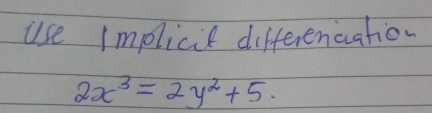 Use Implicit differenciation
2x³ = 2y² + 5.